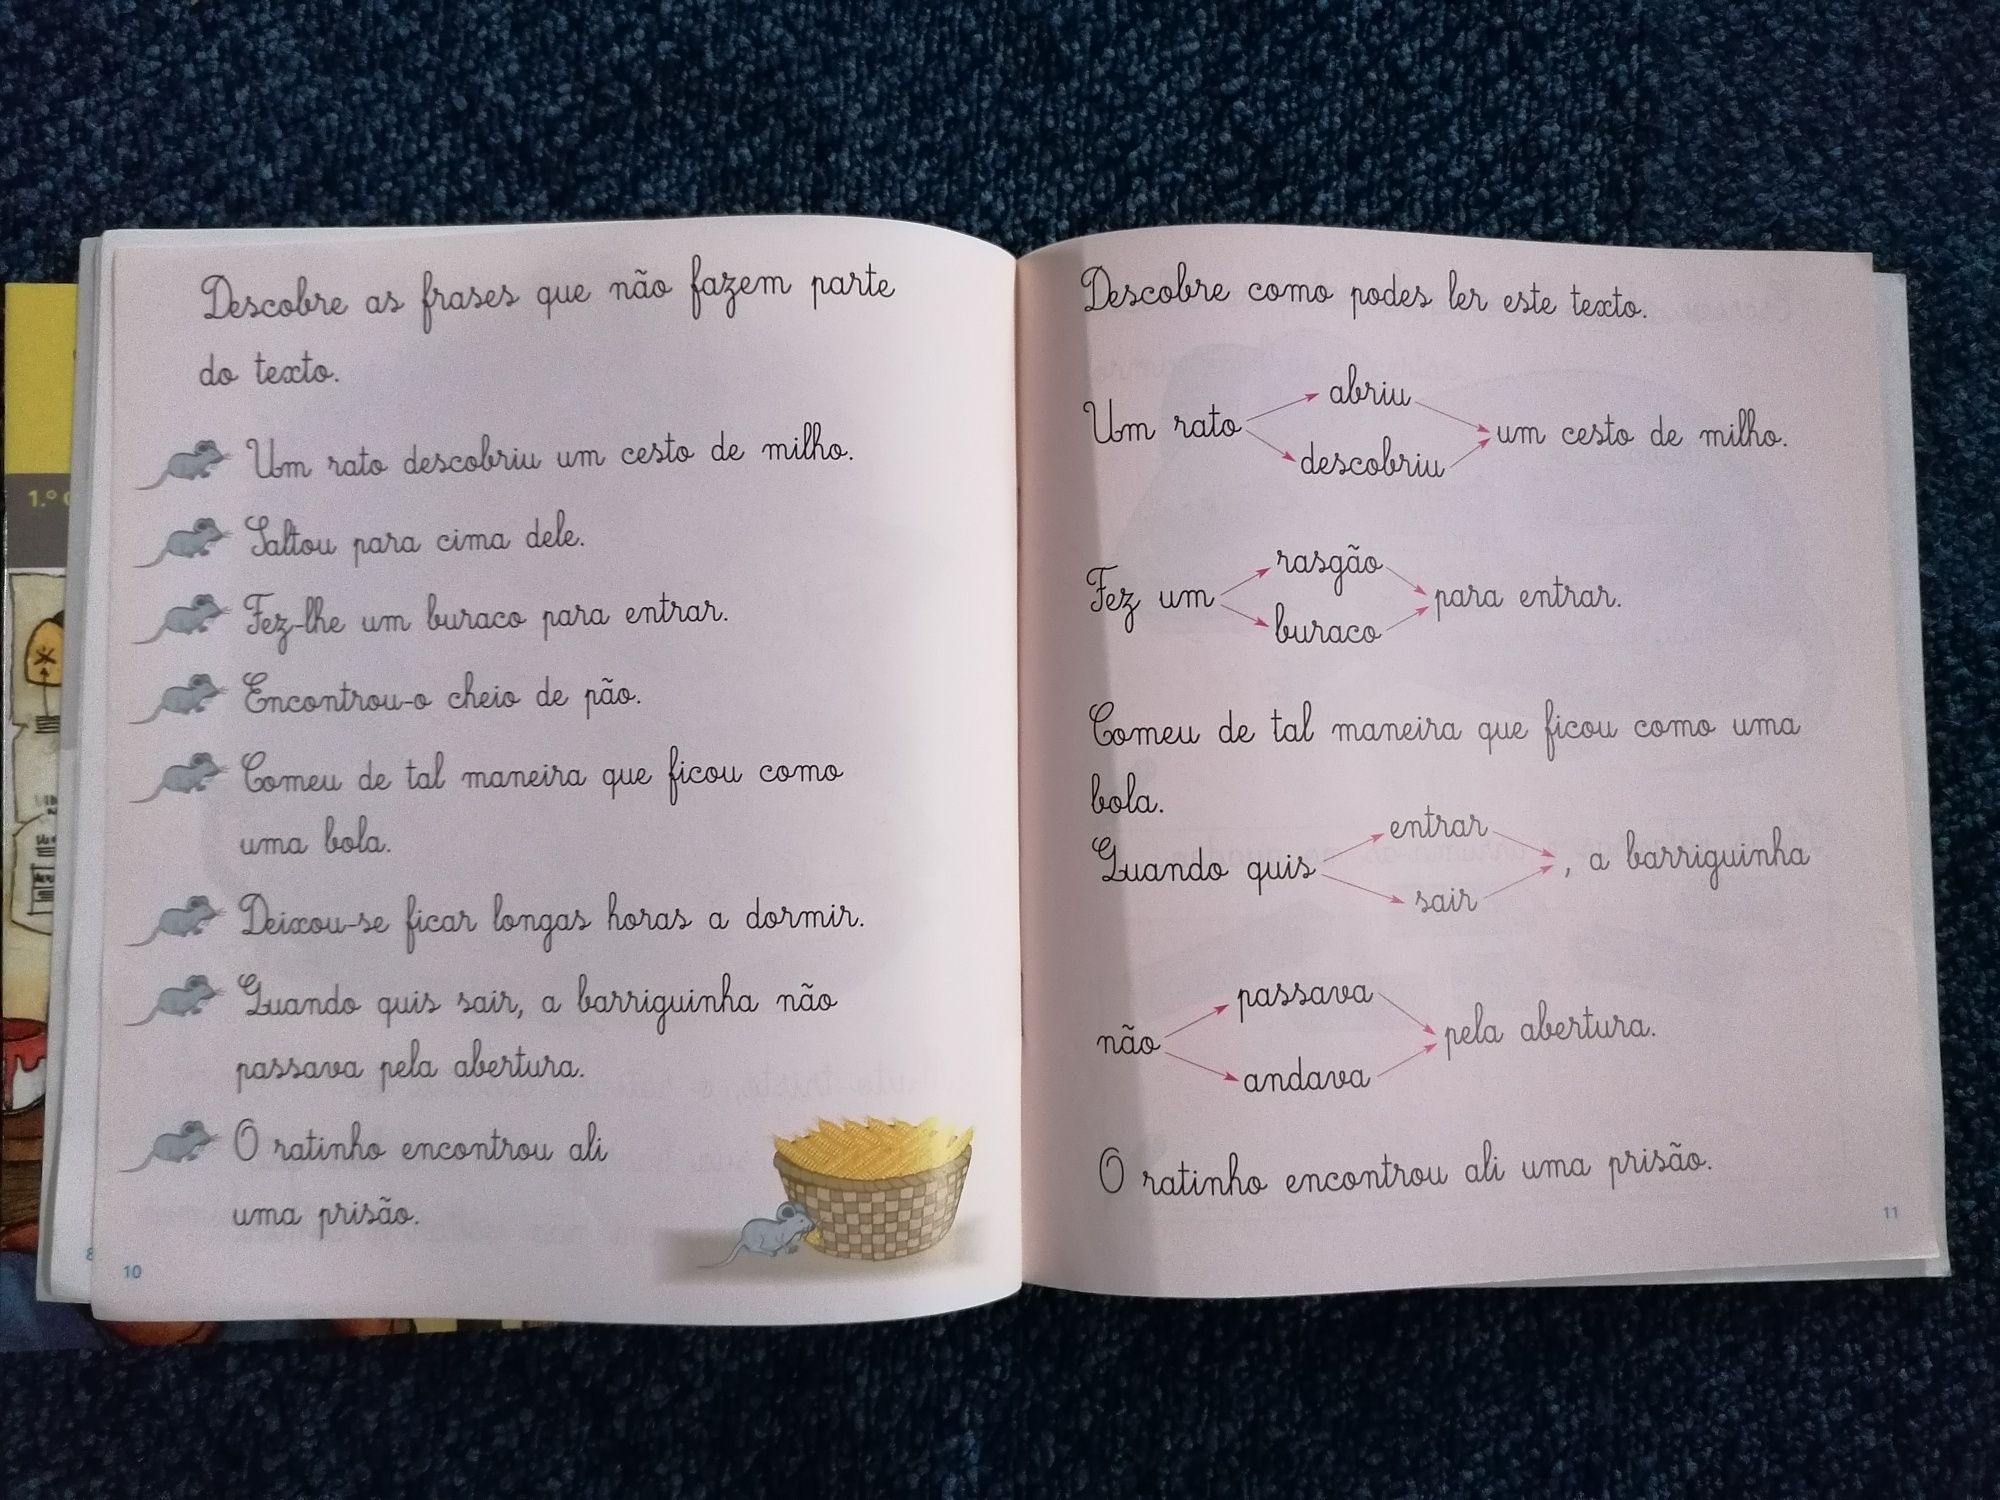 Descobre as frases que não fazem parte
do texto.
Um rato descobriu um cesto de milho.
Saltou para cima dele.
Fez-lhe um buraco para entrar.
Encontrou-o cheio de pão.
Comeu de tal maneira que ficou como
uma bola.
Deixou-se ficar longas horas a dormir.
Quando quis sair, a barriguinha não
passava pela abertura.
O ratinho encontrou ali
uma prisão.
8
10
1.º
Descobre como podes ler este texto.
abriu
Um rato um cesto de milho.
descobriu
rasgão
Fez um para entrar.
buraco
Comeu de tal maneira que ficou como uma
bola.
entrar
Quando quis , a barriguinha
sair
passava
não pela abertura.
andava
O ratinho encontrou ali uma prisão.
11